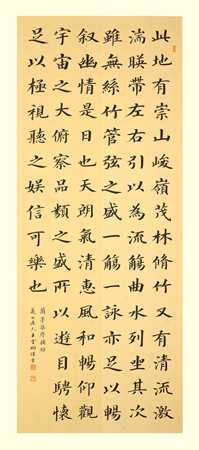 此地有崇山峻嶺茂林脩竹又有清流激
湍暎帶左右引以為流觴曲水列坐其次
雖無絲竹管弦之盛一觴一詠亦足以暢
叙幽情是日也天朗氣清惠風和暢仰觀
宇宙之大俯察品類之盛所以遊目騁懷
足以極視聽之娛信可樂也
蘭亭集序